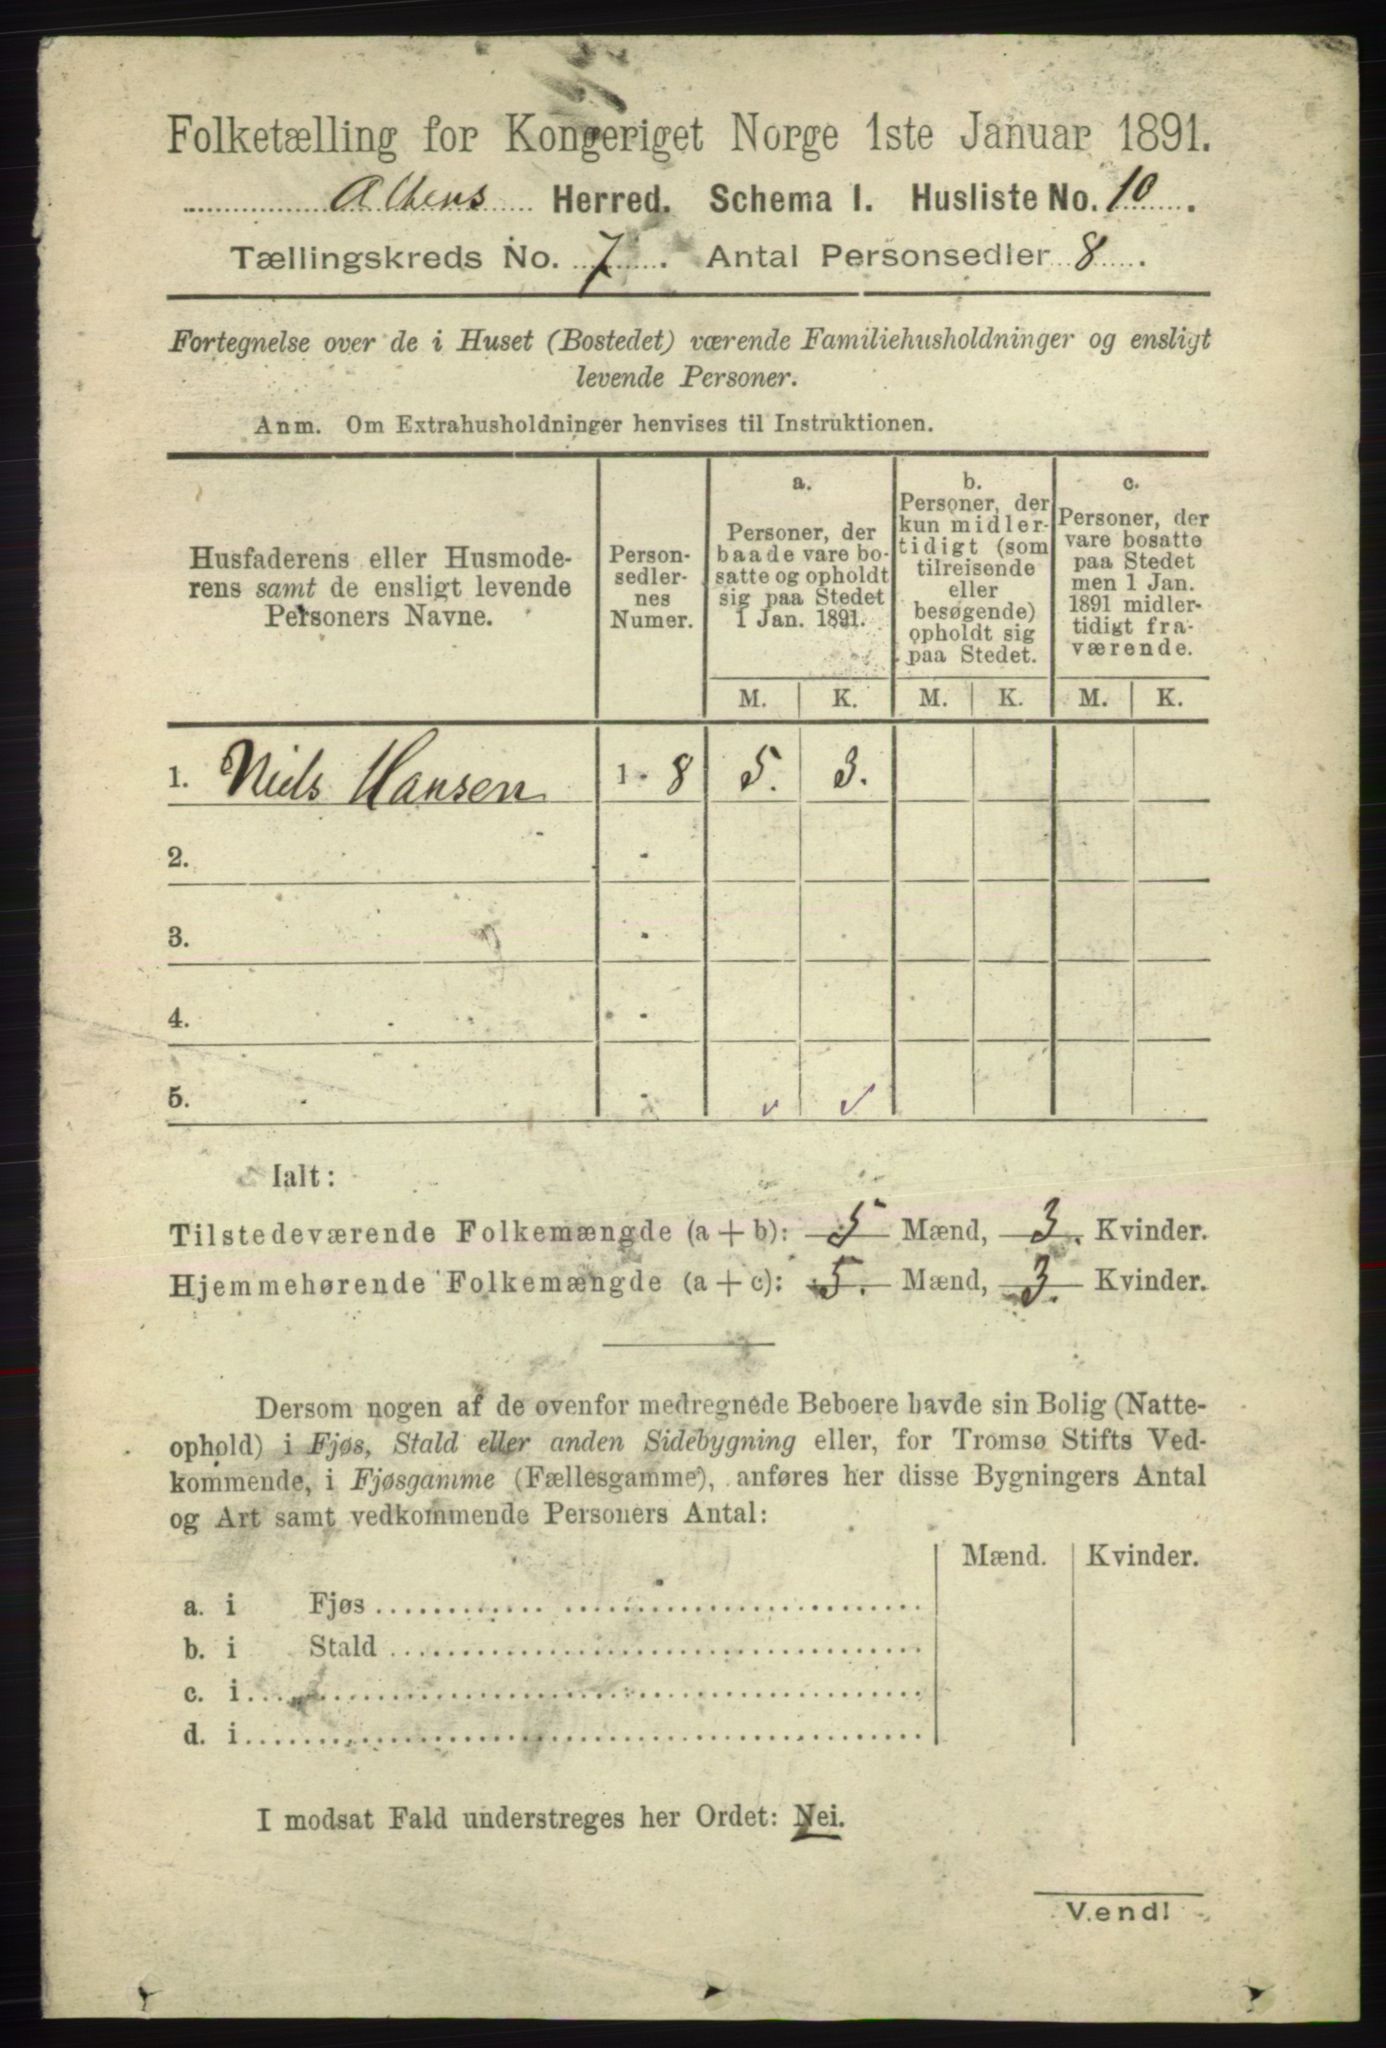 Folketælling for Kongeriget Norge 1ste Januar 1891.
Altens Herred. Schema I. Husliste No. 10.
Tællingskreds No. 7. Antal Personsedler 8.
Fortegnelse over de i Huset (Bostedet) værende Familiehusholdninger og ensligt
levende Personer.
Anm. Om Extrahusholdninger henvises til Instruktionen.
Husfaderens eller Husmode-
rens samt de ensligt levende
Personers Navne.
Person-
sedler-
nes
Numer.
a.
Personer, der
baade vare bo-
satte og opholdt
sig paa Stedet
1 Jan. 1891.
b.
Personer, der
kun midler-
tidigt (som
tilreisende
eller
besøgende)
opholdt sig
paa Stedet.
c.
Personer, der
vare bosatte
paa Stedet
men 1 Jan.
1891 midler-
tidigt fra-
værende.
M. K. M. K. M. K.
1. Niels Hansen 1 - 8 5. 3.
2. -
3. -
4. -
5. -
Ialt:
Tilstedeværende Folkemængde (a + b): 5 Mænd, 3. Kvinder.
Hjemmehørende Folkemængde (a + c): 5. Mænd, 3. Kvinder.
Dersom nogen af de ovenfor medregnede Beboere havde sin Bolig (Natte-
ophold) i Fjøs, Stald eller anden Sidebygning eller, for Tromsø Stifts Ved-
kommende, i Fjøsgamme (Fællesgamme), anføres her disse Bygningers Antal
og Art samt vedkommende Personers Antal:
Mænd. Kvinder.
a. i Fjøs
b. i Stald
c. i
d. i
I modsat Fald understreges her Ordet: Nei.
Vend!